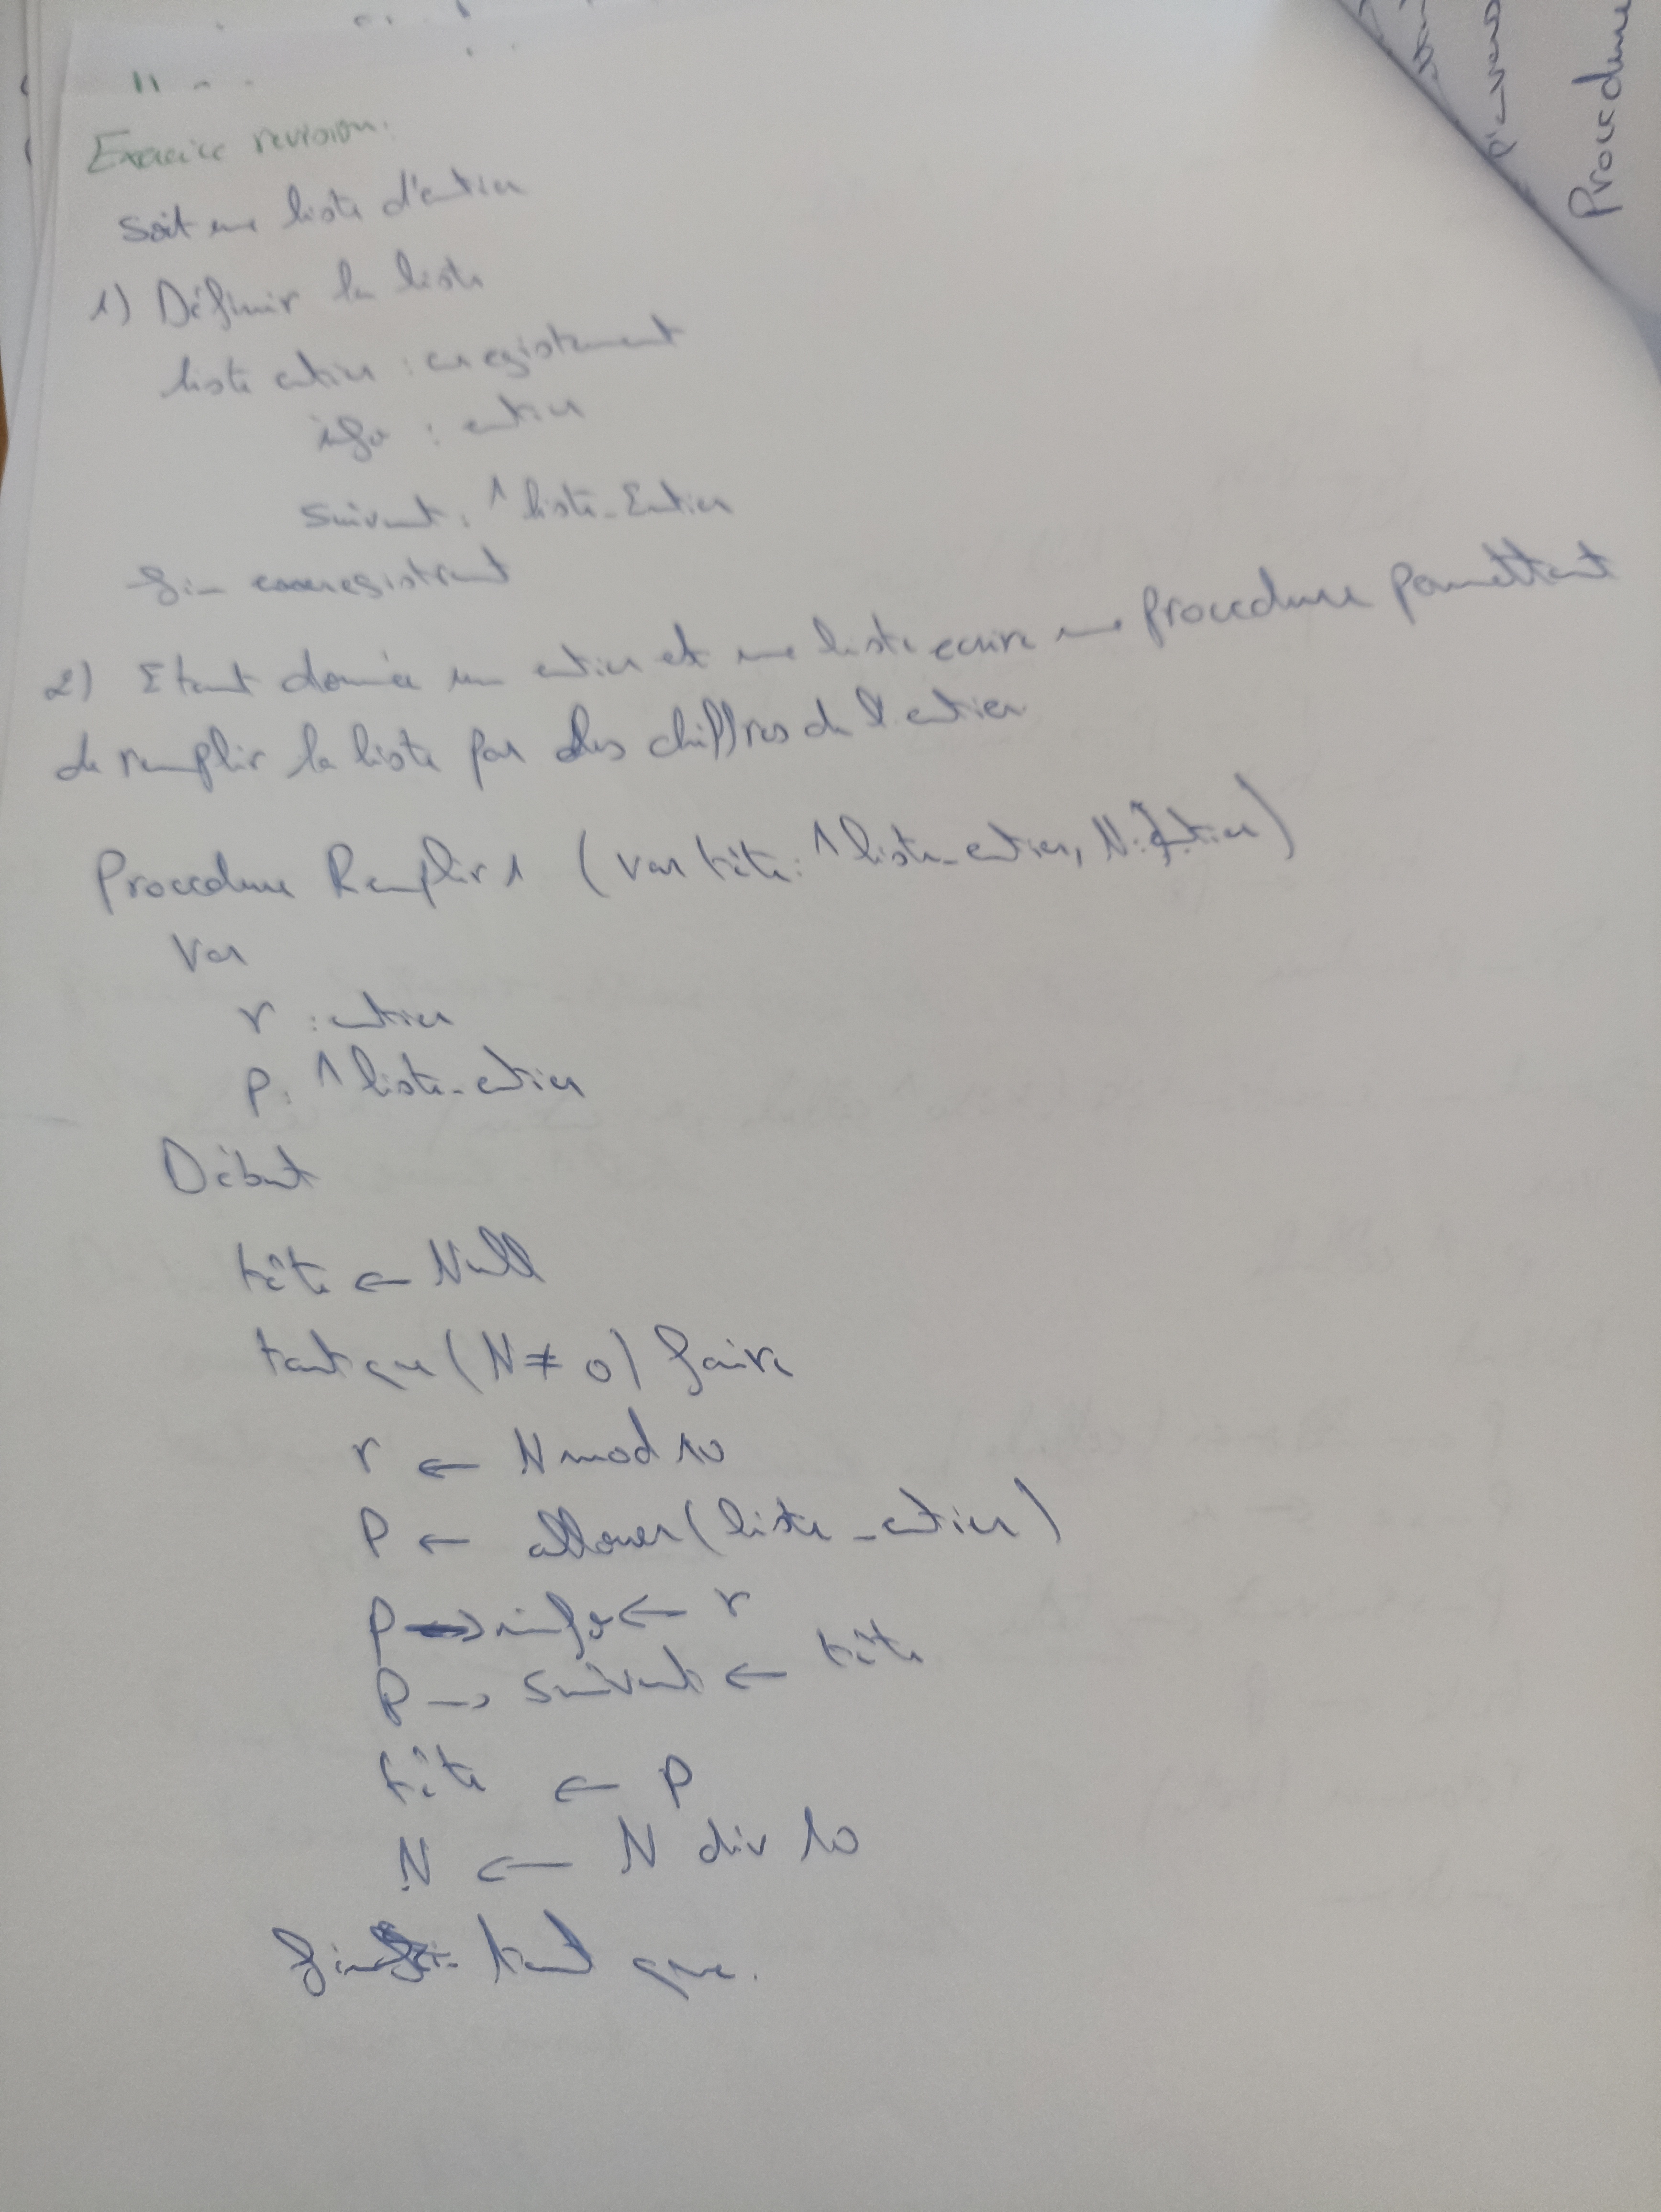 Exercice revision.
Soit une liste d'entier
1) Définir la liste
liste entier : enregistement
info : entier
suivant : ^ liste_Entier
fin
2) Etant donnée un entier et une liste ecrire une procedure permettant
de remplir la liste par les chiffres de l'entier
Procedure Remplir 1 (var tête : ^ liste_entier, N : Entier)
Var
r : entier
P : ^ liste_entier
Début
tête ← Null
tant que (N ≠ 0) faire
r ← N mod 10
P ← allouer (liste_entier)
P → info ← r
P → suivant ← tête
tête ← P
N ← N div 10
fin tant que.
Procedure